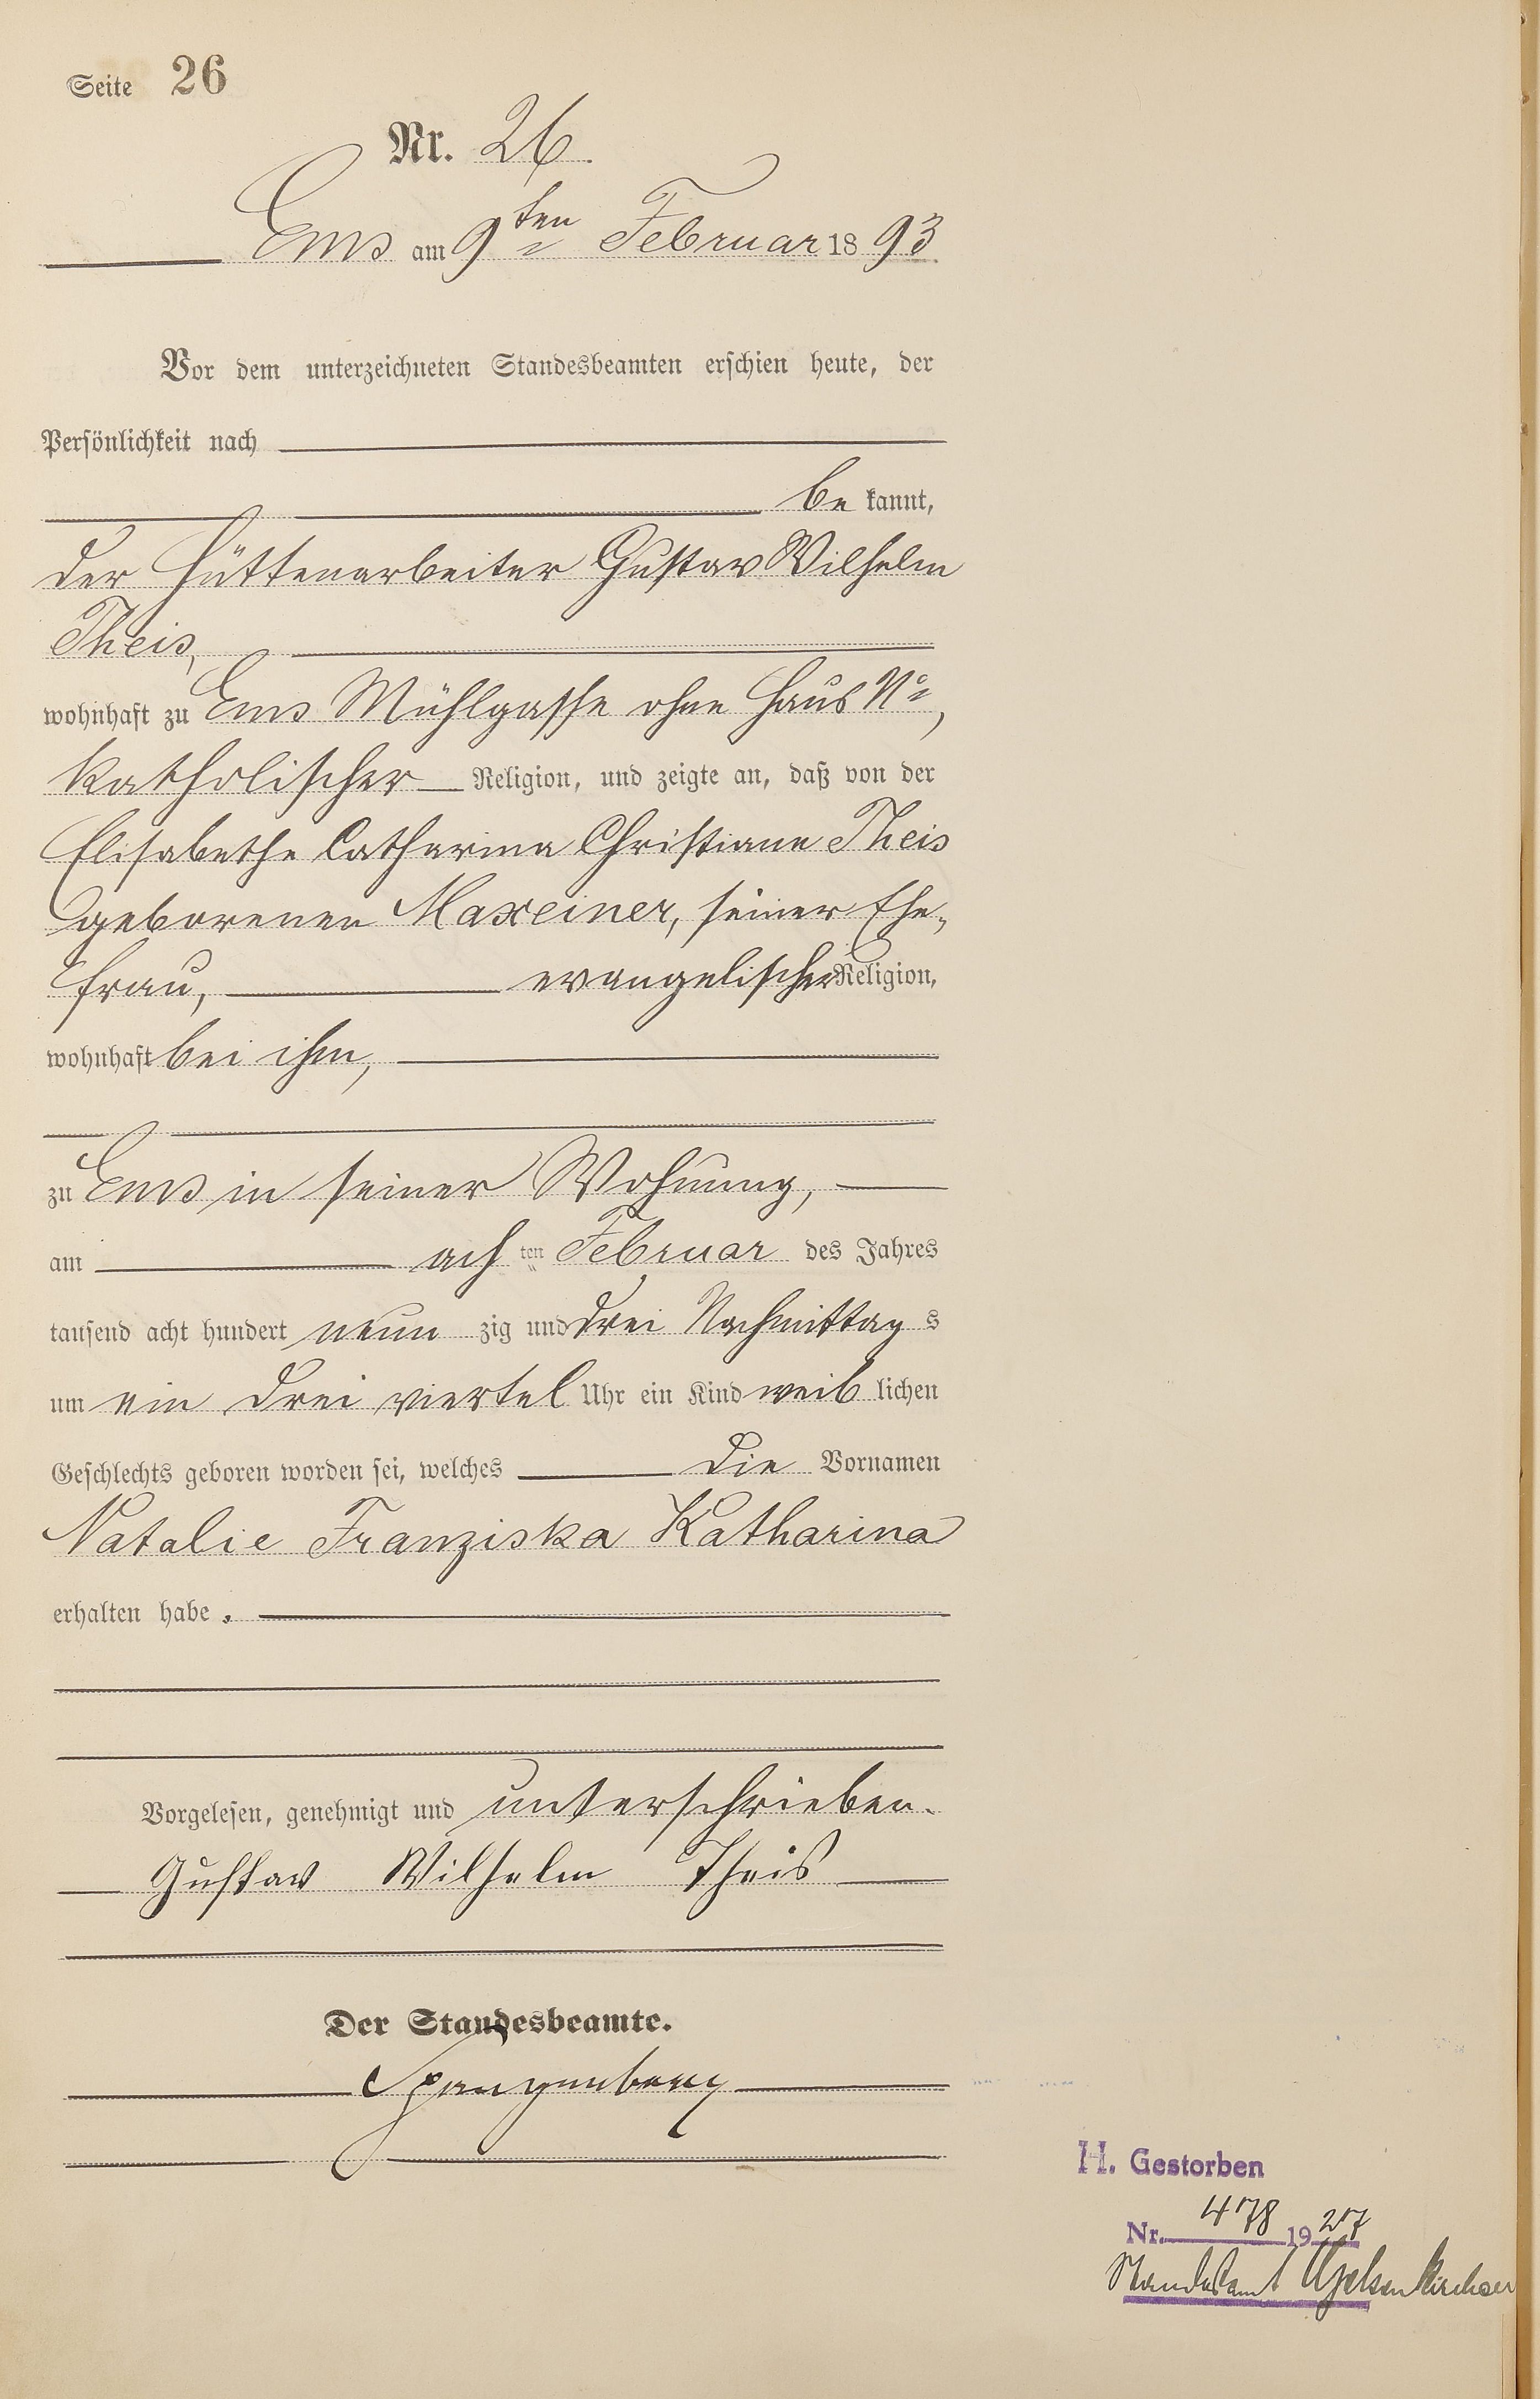 Seite 26
Nr. 26.
Ems am 9ten Februar 1893.
Vor dem unterzeichneten Standesbeamten erschien heute, der
Persönlichkeit nach
be kannt,
der Hüttenarbeiter Gustav Wilhelm
Theis,
wohnhaft zu Ems Mühlgasse ohne Haus No,
katholischer Religion, und zeigte an, daß von der
Elisabethe Catharina Christiane Theis
geborenen Maxeiner, seiner Ehe-
frau, evangelischer Religion,
wohnhaft bei ihm,
zu Ems in seiner Wohnung,
am ach ten Februar des Jahres
tausend acht hundert neun zig und drei Nachmittag s
um ein drei viertel Uhr ein Kind weib lichen
Geschlechts geboren worden sei, welches die Vornamen
Natalie Franziska Katharina
erhalten habe.
Vorgelesen, genehmigt und unterschrieben.
Gustav Wilhelm Theis
Der Standesbeamte.
Spangenberg
H. Gestorben
Nr. 478 1927
Standesamt Gelsenkirchen